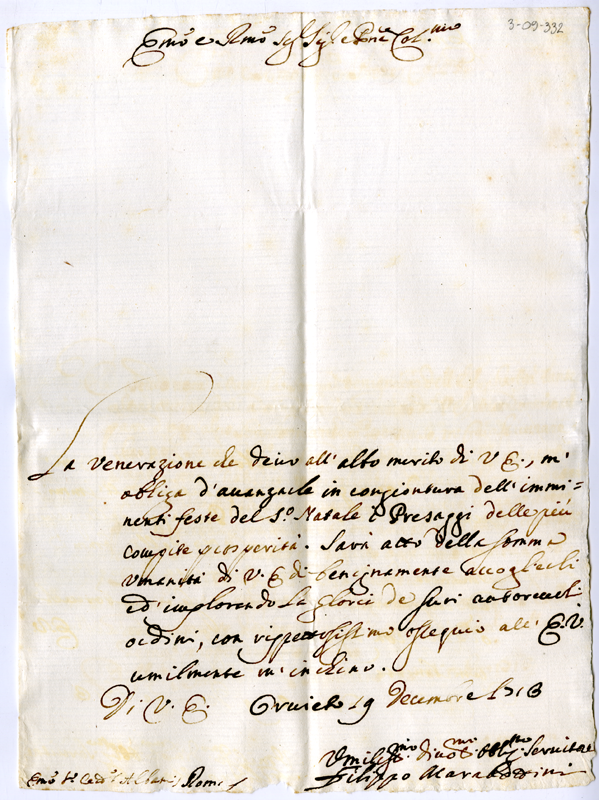 3-09-332
Em̃o e Rm̃o Sig.r Sig.r e Pne Col.mo
La venerazione che deuo all'alto merito di V. E., m'
obliga d'auanzarle in congiontura dell'immi=
nenti feste del S.o Natale i Presaggi delle più
compite prosperità. Sarà atto della somma
vmanità di V. E. di benignamente accoglierli
ed' implorando la gloria de suoi autoreuoli
ordini, con rispettosissimo ossequio all' E. V.
umilmente m'inchino.
Di V. E. Orvieto 19 Decembre 1713
Vmiliss.mo diuot.mo obblig.mo Seruitore
Filippo
Em̃o S.r Card.l Albani, Roma